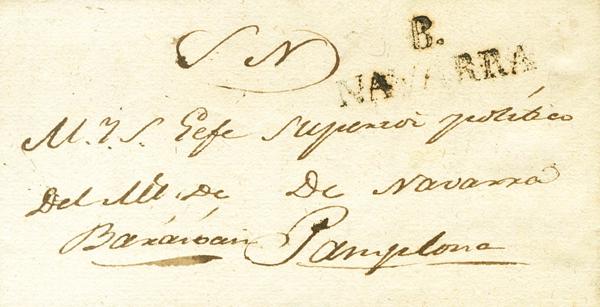 S N
B.
NAVARRA
M. Y. S. Gefe Superior político
Del de De Navarra
Pamplona